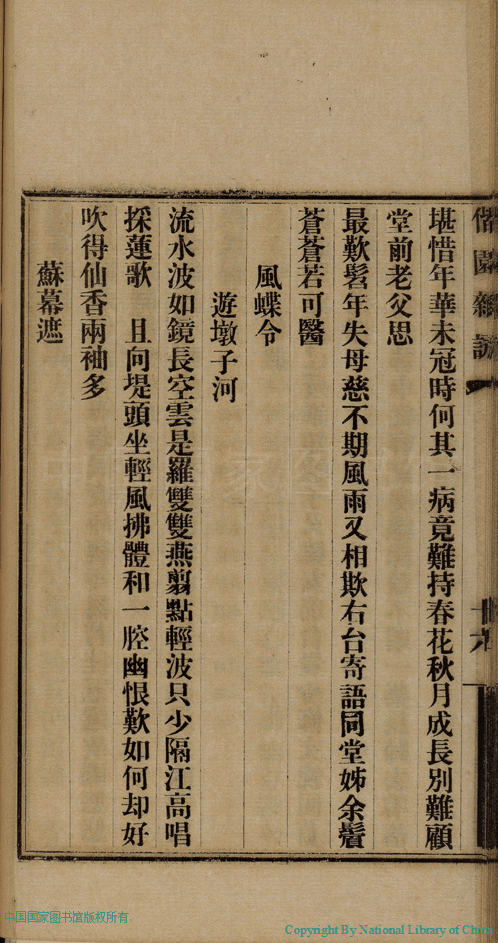 堪惜年華未冠時何其一病竟難持春花秋月成長別難顧
堂前老父思
最歎髫年失母慈不期風雨又相欺右台寄語同堂姊余鬢
蒼蒼若可醫
風蝶令
遊墩子河
流水波如鏡長空雲是羅雙雙燕翦點輕波只少隔江高唱
採蓮歌　且向堤頭坐輕風拂體和一腔幽恨歎如何却好
吹得仙香兩袖多
蘇幕遮
中国国家图书馆版权所有
Copyright By National Library of China